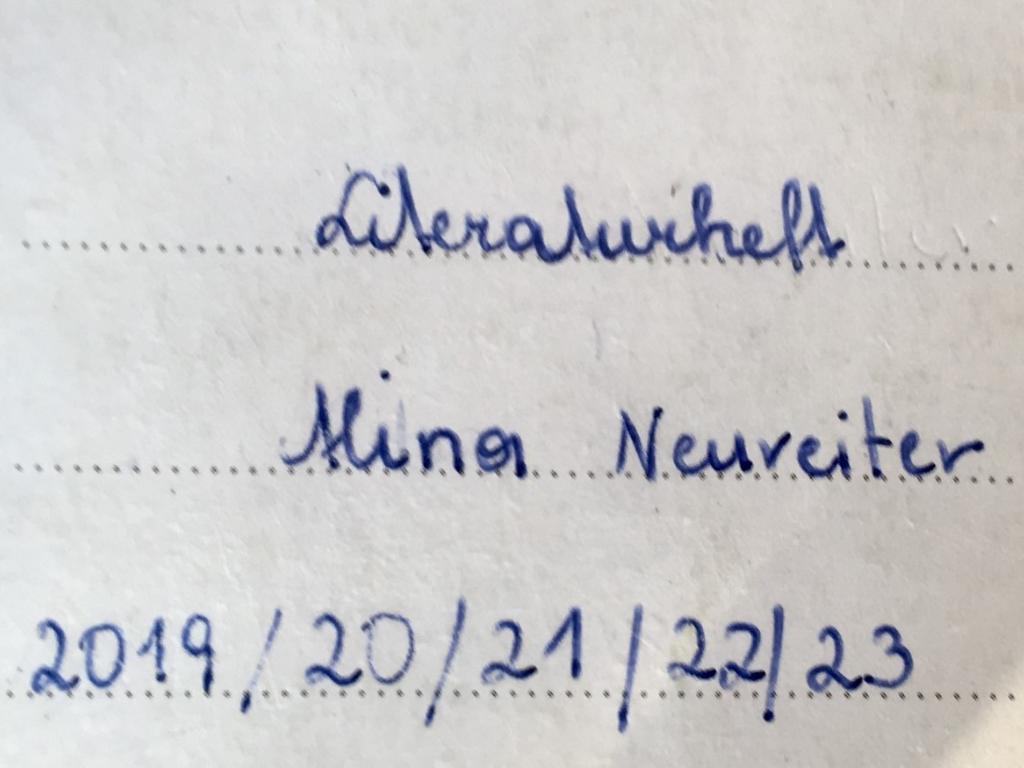 Literaturheft
Mina Neureiter
2019/20/21/22/23